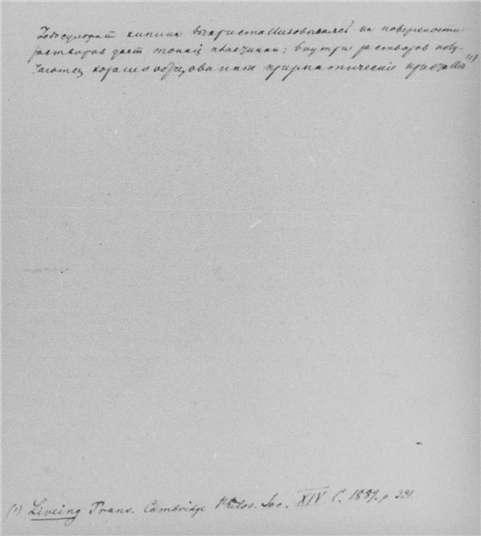 Иодосульфат хинина выкристаллизовываясь на поверхности
растворов дает тонкие пластинки; внутри растворов полу-
чаются хорошо образованные призматические кристаллы (1)
(1) Liveing Trans. Cambridge Philos. Soc. XIV C. 1889. p.